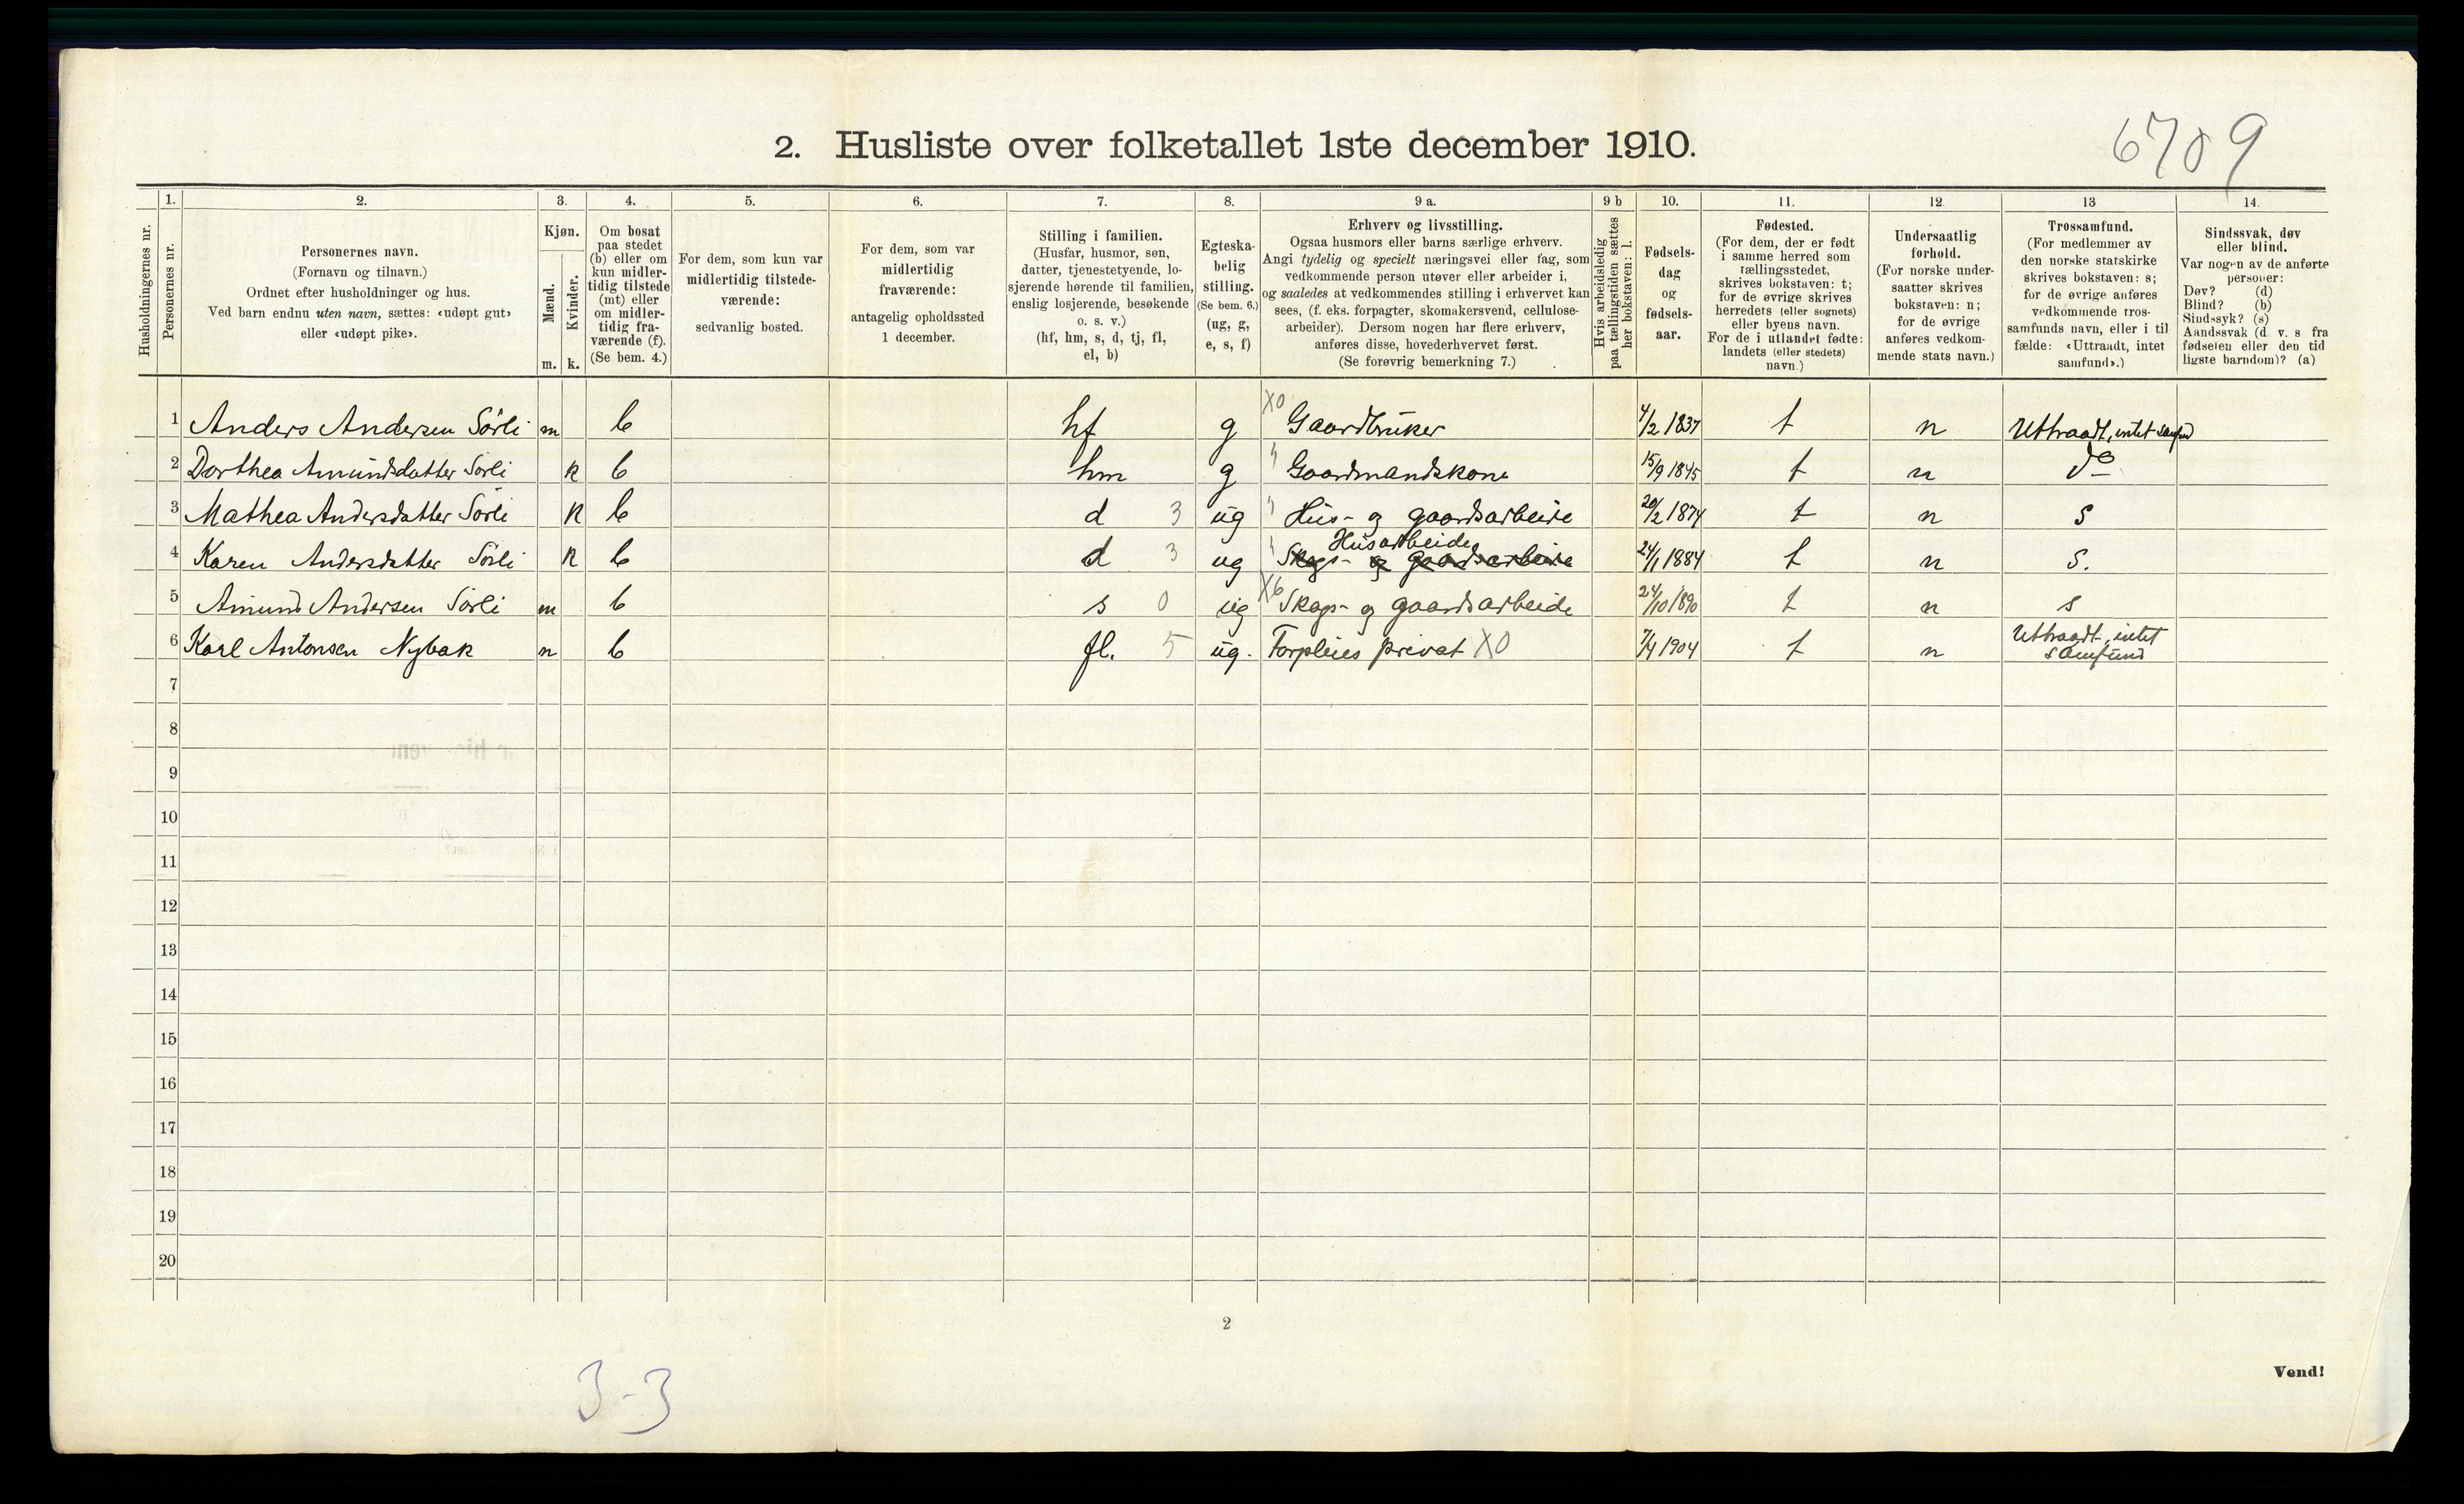 2. Husliste over folketallet 1ste december 1910.
6709
Husholdningernes nr.
1.
Personernes nr.
2.
Personernes navn.
(Fornavn og tilnavn.)
Ordnet efter husholdninger og hus.
Ved barn endnu uten navn, sættes: «udøpt gut»
eller «udøpt pike».
3.
Kjøn.
Mænd.
m.
Kvinder.
k.
4.
Om bosat
paa stedet
(b) eller om
kun midler-
tidig tilstede
(mt) eller
om midler-
tidig fra-
værende (f).
(Se bem. 4.)
5.
For dem, som kun var
midlertidig tilstede-
værende:
sedvanlig bosted.
6.
For dem, som var
midlertidig
fraværende:
antagelig opholdssted
1 december.
7.
Stilling i familien.
(Husfar, husmor, søn,
datter, tjenestetyende, lo-
sjerende hørende til familien,
enslig losjerende, besøkende
o. s. v.)
(hf, hm, s, d, tj, fl,
el, b)
8.
Egteska-
belig
stilling.
(Se bem. 6.)
(ug, g,
e, s, f)
9 a.
Erhverv og livsstilling.
Ogsaa husmors eller barns særlige erhverv.
Angi tydelig og specielt næringsvei eller fag, som
vedkommende person utøver eller arbeider i,
og saaledes at vedkommendes stilling i erhvervet kan
sees, (f. eks. forpagter, skomakersvend, cellulose-
arbeider). Dersom nogen har flere erhverv,
anføres disse, hovederhvervet først.
(Se forøvrig bemerkning 7.)
9 b
Hvis arbeidsledig
paa tællingstiden sættes
her bokstaven: l.
10.
Fødsels-
dag
og
fødsels-
aar.
11.
Fødested.
(For dem, der er født
i samme herred som
tællingsstedet,
skrives bokstaven: t;
for de øvrige skrives
herredets (eller sognets)
eller byens navn.
For de i utlandet fødte:
landets (eller stedets)
navn.)
12.
Undersaatlig
forhold.
(For norske under-
saatter skrives
bokstaven: n;
for de øvrige
anføres vedkom-
mende stats navn.)
13
Trossamfund.
(For medlemmer av
den norske statskirke
skrives bokstaven: s;
for de øvrige anføres
vedkommende tros-
samfunds navn, eller i til
fælde: «Uttraadt, intet
samfund».)
14.
Sindssvak, døv
eller blind.
Var nogen av de anførte
personer:
Døv? (d)
Blind? (b)
Sindssyk? (s)
Aandssvak (d. v. s fra
fødselen eller den tid
ligste barndom)? (a)
1 Anders Andersen Sørli m b hf g X0 Gaardbruker 4/2 1837 t n Uttraadt, intet samfund
2 Dorthea Amundsdatter Sørli k b hm g Gaardmandskone 15/9 1845 t n do
3 Mathea Andersdatter Sørli k b d 3 ug Hus- og gaardsarbeide 20/2 1874 t n s
Husarbeide
4 Karen Andersdatter Sørli k b d 3 ug Skogs- og gaardsarbeide 24/1 1884 t n s.
5 Amund Andersen Sørli m b s 0 ug X6 Skogs- og gaardsarbeide 24/10 1890 t n s
6 Karl Antonsen Nybak m b fl. 5 ug. Forpleies privat X0 7/4 1904 t n Uttraadt, intet
samfund
7
8
9
10
11
12
13
14
15
16
17
18
19
20
2
Vend!
3-3